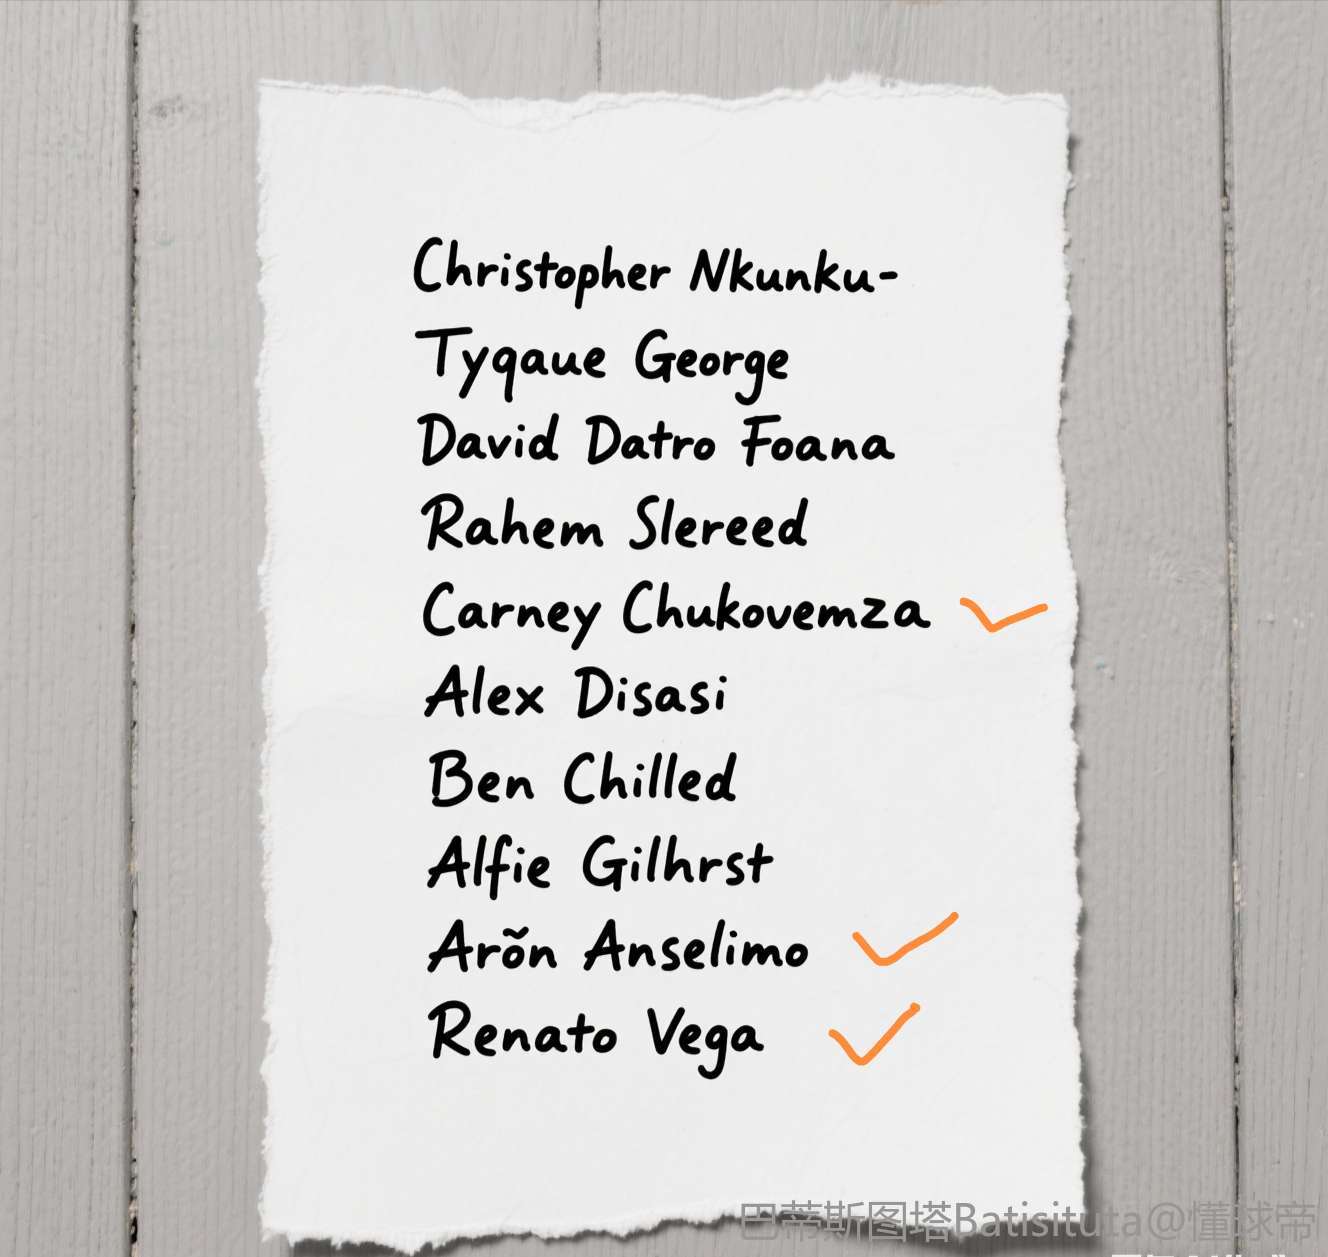 Christopher Nkunku-
Tyqaue George
David Datro Foana
Rahem Slereed
Carney Chukovemza
Alex Disasi
Ben Chilled
Alfie Gilhrst
Arõn Anselimo
Renato Vega
巴蒂斯图塔Batisituta@懂球帝